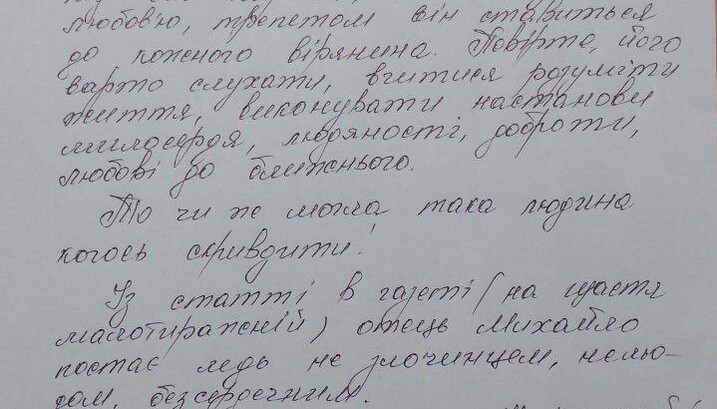 любов'ю, трепетом він ставиться
до кожного вірянина. Повірте, його
варто слухати, вчитися розуміти
життя, виконувати настанови
милосердя, людяності, доброти,
любові до ближнього.
То чи ж могла така людина
когось скривдити!
Із статті в газеті (на щастя
малотиражній) отець Михайло
постає ледь не злочинцем, нелю-
дом, безсердечним.